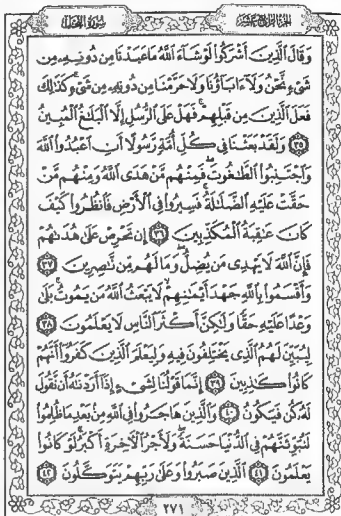 الجزء الرابع عشر سورة النحل
وَقَالَ الَّذِينَ أَشْرَكُوا لَوْ شَاءَ اللَّهُ مَا عَبَدْنَا مِن دُونِهِ مِن
شَيْءٍ نَّحْنُ وَلَا ءَابَاؤُنَا وَلَا حَرَّمْنَا مِن دُونِهِ مِن شَيْءٍ كَذَٰلِكَ
فَعَلَ الَّذِينَ مِن قَبْلِهِمْ فَهَلْ عَلَى الرُّسُلِ إِلَّا الْبَلَٰغُ الْمُبِينُ
٣٥ وَلَقَدْ بَعَثْنَا فِي كُلِّ أُمَّةٍ رَّسُولًا أَنِ اعْبُدُوا اللَّهَ
وَاجْتَنِبُوا الطَّٰغُوتَ فَمِنْهُم مَّنْ هَدَى اللَّهُ وَمِنْهُم مَّنْ
حَقَّتْ عَلَيْهِ الضَّلَٰلَةُ فَسِيرُوا فِي الْأَرْضِ فَانظُرُوا كَيْفَ
كَانَ عَٰقِبَةُ الْمُكَذِّبِينَ ٣٦ إِن تَحْرِصْ عَلَىٰ هُدَىٰهُمْ
فَإِنَّ اللَّهَ لَا يَهْدِي مَن يُضِلُّ وَمَا لَهُم مِّن نَّٰصِرِينَ ٣٧
وَأَقْسَمُوا بِاللَّهِ جَهْدَ أَيْمَٰنِهِمْ لَا يَبْعَثُ اللَّهُ مَن يَمُوتُ بَلَىٰ
وَعْدًا عَلَيْهِ حَقًّا وَلَٰكِنَّ أَكْثَرَ النَّاسِ لَا يَعْلَمُونَ ٣٨
لِيُبَيِّنَ لَهُمُ الَّذِي يَخْتَلِفُونَ فِيهِ وَلِيَعْلَمَ الَّذِينَ كَفَرُوا أَنَّهُمْ
كَانُوا كَٰذِبِينَ ٣٩ إِنَّمَا قَوْلُنَا لِشَيْءٍ إِذَا أَرَدْنَٰهُ أَن نَّقُولَ
لَهُ كُن فَيَكُونُ ٤٠ وَالَّذِينَ هَاجَرُوا فِي اللَّهِ مِن بَعْدِ مَا ظُلِمُوا
لَنُبَوِّئَنَّهُمْ فِي الدُّنْيَا حَسَنَةً وَلَأَجْرُ الْءَاخِرَةِ أَكْبَرُ لَوْ كَانُوا
يَعْلَمُونَ ٤١ الَّذِينَ صَبَرُوا وَعَلَىٰ رَبِّهِمْ يَتَوَكَّلُونَ ٤٢
٢٧١